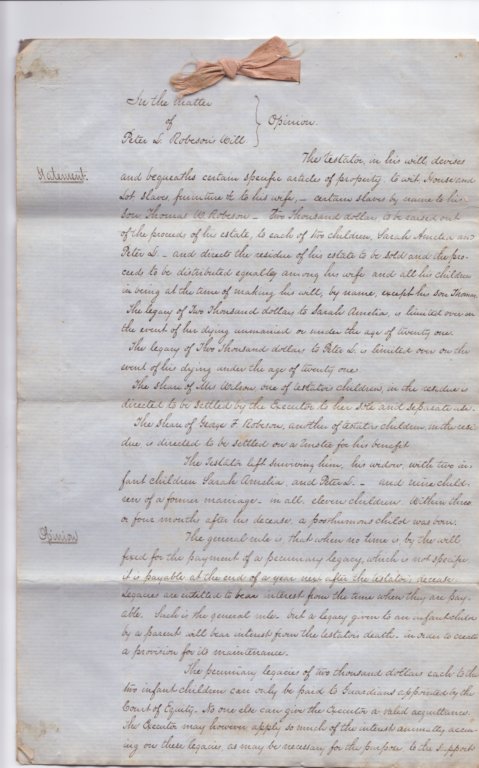 In the Matter
of
Peter L. Robeson's Will
Opinion.
The Testator, in his will, devises
Statement.
and bequeaths certain specific articles of property to wit, House and
Lot slaves furniture &c to his wife, – certain slaves by name to his
son Thomas W. Robeson – Two Thousand dollars, to be raised out
of the proceeds of his estate, to each of two children, Sarah Amelia and
Peter L. – and directs the residue of his estate to be sold and the pro-
ceeds to be distributed equally among his wife and all his children
in being at the time of making his will, by name, except his son Thomas
The legacy of Two Thousand dollars to Sarah Amelia, is limited over in
the event of her dying unmarried or under the age of twenty one.
The legacy of Two Thousand dollars, to Peter L. is limited over on the
event of his dying under the age of twenty one
The share of Mrs Wilson, one of testators children, in the residue is
directed to be settled by the Executor to her sole and separate use.
The share of George F. Robeson, another of testators children, in the resi
due, is directed to be settled on a Trustee for his benefit
The Testator left surviving him, his widow, with two in-
fant children Sarah Amelia, and Peter L. – and nine child-
ren of a former marriage – in all, eleven children. Within three
or four months after his decease, a posthumous child was born.
Opinion
The general rule is, that when no time is by the will
fixed for the payment of a pecuniary legacy, which is not specific,
it is payable at the end of a year next after the testator's decease.
Legacies are entitled to bear interest from the time when they are pay-
able. Such is the general rule. but a legacy given to an infant child
by a parent will bear interest from the testator's death, in order to create
a provision for its maintenance.
The pecuniary legacies of two thousand dollars each to the
two infant children can only be paid to Guardians appointed by the
Court of Equity. No one else can give the Executor a valid acquittance.
The Executor may however apply so much of the interest annually accru-
ing on these legacies as may be necessary for the purpose to the support